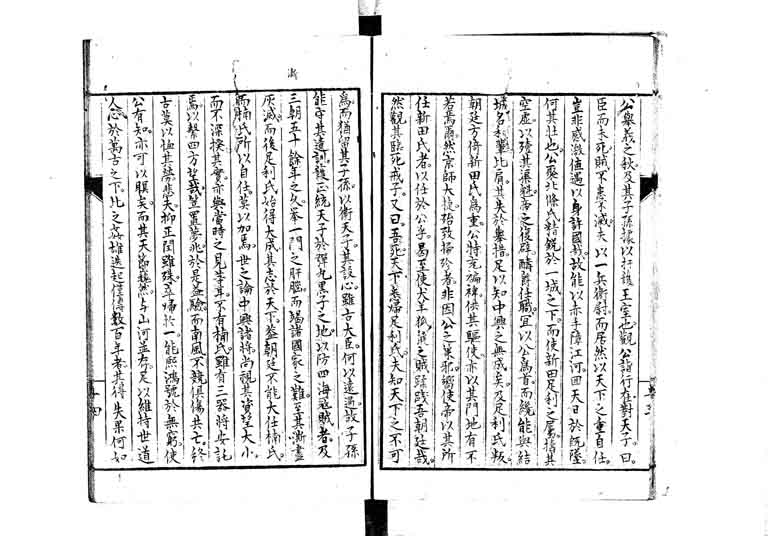 公擧義之秋及其子孫據以扞護王室也觀公詣行在對天子曰
臣而未死賊不患不滅夫以一兵衛尉而居然以天下之重自任
豈非感激値遇以身許國哉故能以赤手障江河回天日於既墜
何其壯也公聚北條氏精鋭於一城之下而使新田足利之屬擣其
空虚以殪其渠魁帝之復辟酬爵任職宜以公爲首而纔能與結
城名和輩比肩其失於擧措足以知中興之無成矣及足利氏叛
朝廷方倚新田氏爲重公特充褊裨供其驅使亦以其門地有不
若焉爾然京師大捷殆致掃殄者非因公之策邪嚮使帝以其所
任新田氏者以任於公乎曷至使犬羊狐鼠之賊蹂踐吾朝廷哉
然觀其臨死戒子又曰吾死天下悉歸足利氏夫知天下之不可
爲而猶留其子孫以衛天子其設心雖古大臣何以遠過故子孫
能守其遺訓護正統天子於彈丸黒子之地以防四海寇賊者及
澌
三朝五十餘年之久擧一門之肝腦而竭諸國家之難至其漸盡
灰滅而後足利氏始得大成其志於天下蓋朝廷不能大任楠氏
而楠氏所以自任莫以加焉世之論中興諸將尚視其資望大小
而不深揆其實亦與當時之見等耳不有楠氏雖有三器將安託
焉以繋四方望哉笠置夢兆於是益驗而南風不競倶傷共亡終
古莫以恤其勞悲夫抑正閏雖殊卒歸於一能熙鴻號於無窮使
公有知亦可以瞑矣而其大節巍然與山河並存足以維持世道
人心於萬古之下比之姦雄迭起僅傳數百年者其得失果何如